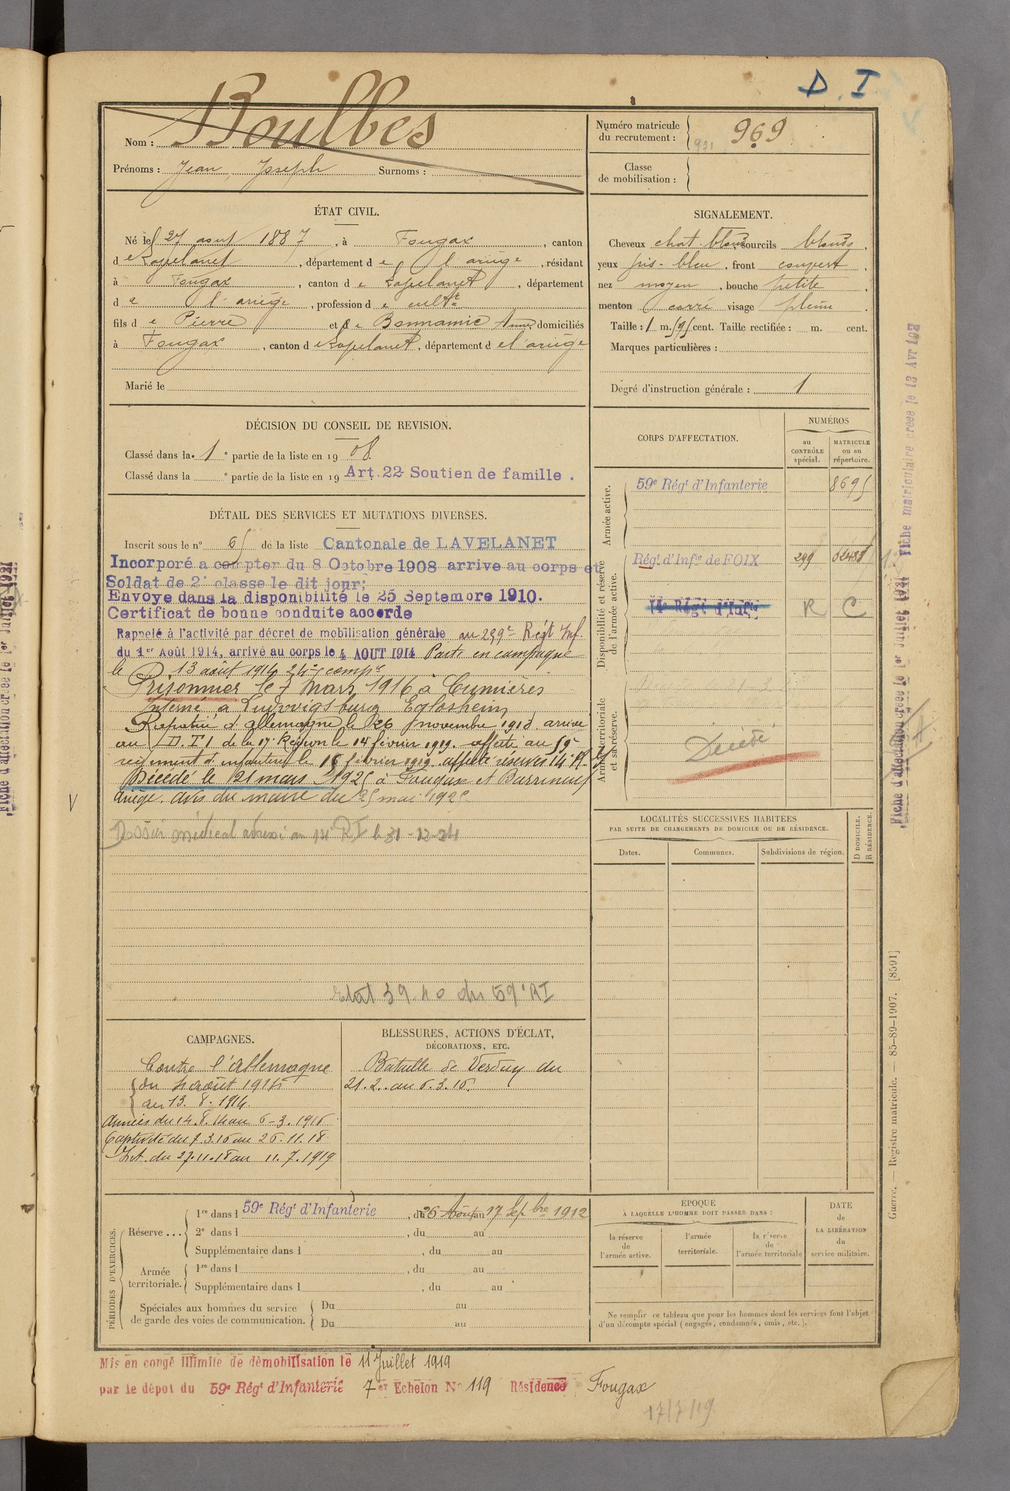 D. I
Nom : Boulbes
Prénoms : Jean Joseph Surnoms :
Numéro matricule
du recrutement : 969
931
Classe
de mobilisation :
ÉTAT CIVIL.
Né le 27 aout 1887, à Fougax, canton
de Lapelanet, département de l'ariège, résidant
à Fougax, canton de Lapelanet, département
de l'ariège, profession de cultr
fils de Pierre et de Bonnamic Anne domiciliés
à Fougax, canton de Lapelanet, département de l'ariège
Marié le
SIGNALEMENT.
Cheveux chat. blond sourcils blonds,
yeux gris-bleu, front couvert,
nez moyen, bouche petite,
menton carré visage plein.
Taille : 1 m. cent. Taille rectifiée : m. cent.
Marques particulières :
Degré d'instruction générale : 1
DÉCISION DU CONSEIL DE REVISION.
Classé dans la 1e partie de la liste en 1908
Classé dans la e partie de la liste en 19 Art. 22 Soutien de famille.
DÉTAIL DES SERVICES ET MUTATIONS DIVERSES.
Inscrit sous le n° 65 de la liste Cantonale de LAVELANET
Incorporé a compter du 8 Octobre 1908 arrive au corps et
Soldat de 2e classe le dit jour;
Envoye dans la disponibilité le 25 Septemore 1910.
Certificat de bonne conduite accorde
Rappelé à l'activité par décret de mobilisation générale au 259e Régt Inf.
du 1er Août 1914, arrivé au corps le 4 AOUT 1914 Parti en campagne
le 13 août 1914 24e compie
Prisonnier le 7 mars 1916 à Cumières
Interné à Ludovigsburg Eglosheim
Rapatrié d'allemagne le 26 novembre 1918 arrivé
au D.T.I de la 17e Région le 14 février 1919. affecté au 59e
régiment d'infanterie le 16 février 1919. affecté réserves 14e R.I.
Décédé le 21 mars 1925 à Fougax et Barrineuf
ariège. avis du maire du 25 mai 1925
Dossier médical adressé au 14e R.I. le 31-12-24
Etat 39.40 du 59e RI
CORPS D'AFFECTATION.
NUMÉROS
au
CONTRÔLE
spécial.
MATRICULE
ou au
répertoire.
Armée active.
59e Régt d'Infanterie 8695
Disponibilité et réserve
de l'armée active.
Régt d'Infie de FOIX 249 02438
14e Régt d'Infie R C
Armée territoriale
et sa réserve.
Décédé
LOCALITÉS SUCCESSIVES HABITÉES
PAR SUITE DE CHANGEMENTS DE DOMICILE OU DE RÉSIDENCE.
Dates. Communes. Subdivisions de région.
D DOMICILE.
R RÉSIDENCE.
CAMPAGNES.
Contre l'allemagne
du 4 août 1914
au 13. 8. 1914.
Armées du 14.8.14 au 6-3.1916
Captivité du 7.3.16 au 26.11.18
Int. du 27.11.18 au 11.7.1919
BLESSURES, ACTIONS D'ÉCLAT,
DÉCORATIONS, ETC.
Bataille de Verdun du
21.2. au 6.3.16.
PÉRIODES D'EXERCICES.
Réserve ...
1re dans l 59e Régt d'Infanterie, du 26 Août au 17 Septbre 1912
2e dans l , du au
Supplémentaire dans l , du au
Armée
territoriale.
1re dans l , du au
Supplémentaire dans l , du au
Spéciales aux hommes du service
de garde des voies de communication.
Du au
Du au
EPOQUE
À LAQUELLE L'HOMME DOIT PASSER DANS :
la réserve
de
l'armée active.
l'armée
territoriale.
la réserve
de
l'armée territoriale
DATE
de
LA LIBÉRATION
du
service militaire.
Ne remplir ce tableau que pour les hommes dont les services font l'objet
d'un décompte spécial (engagés, condamnés, omis, etc.).
Mis en congé illimité de démobilisation le 11 Juillet 1919
par le dépot du 59e Régt d'Infanterie 7er Echelon N° 119 Résidence Fougax
17/7/19
Fiche matriculaire créée le 13 Avr 193
Fiche d'affectation créée le 1er Juillet 1921
Guerre. — Registre matricule. — 85-89-1907. [8591]